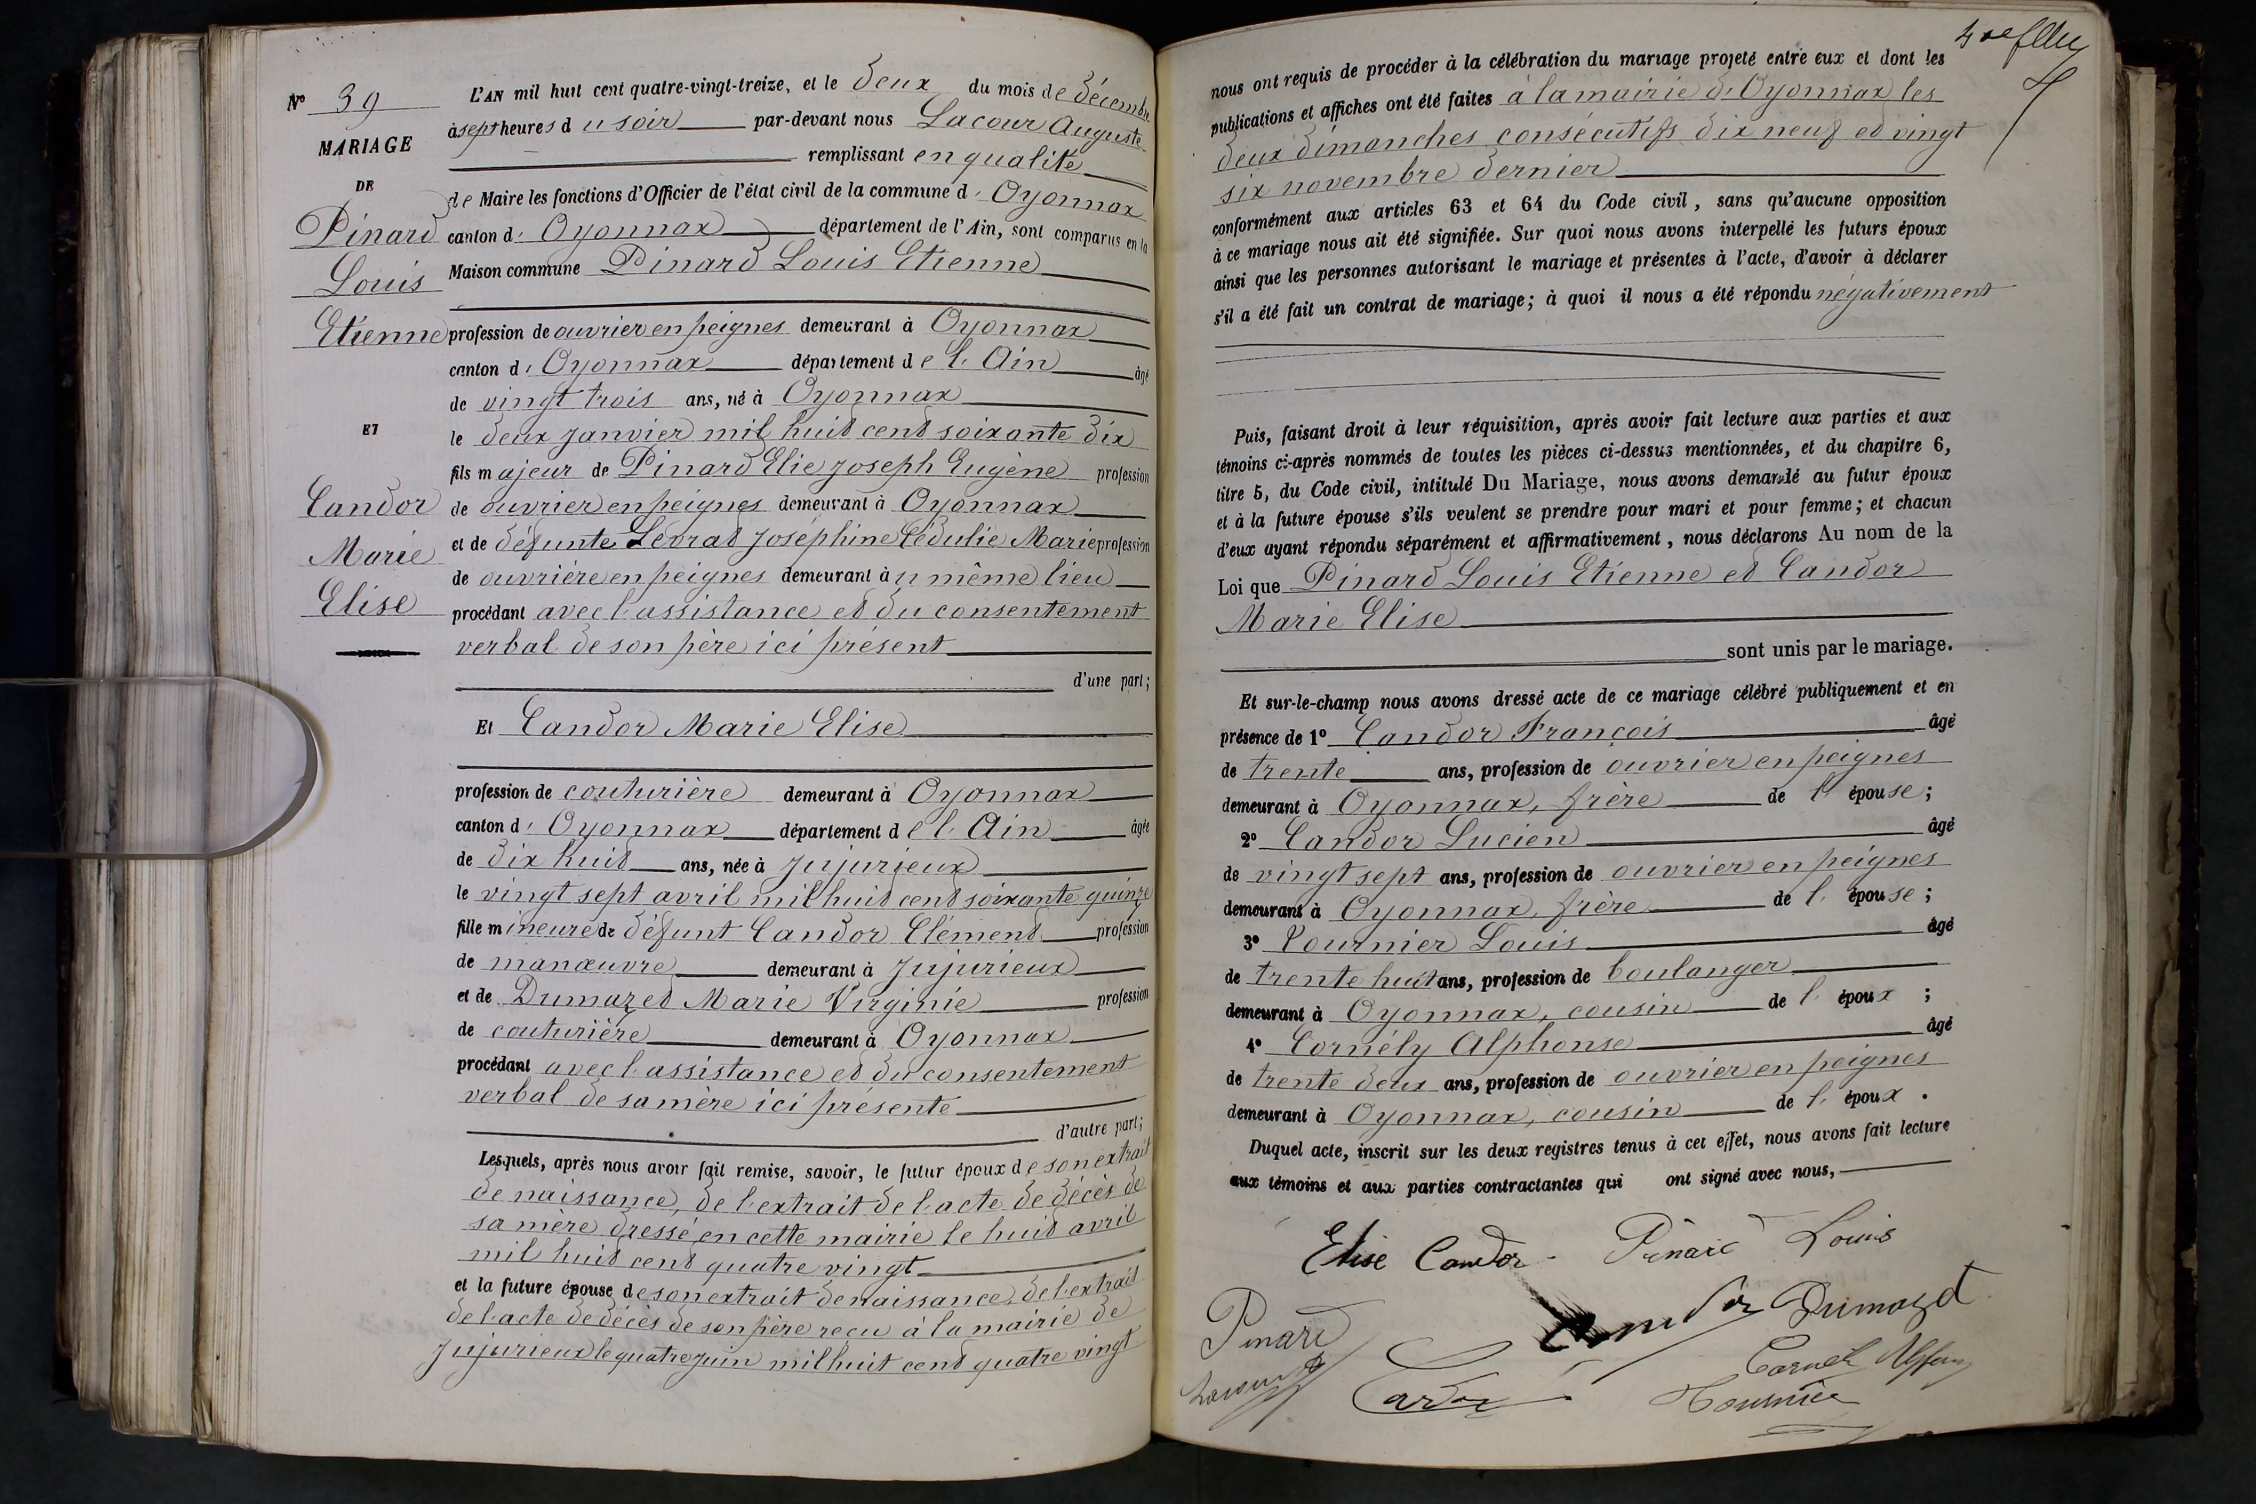 Nº 39
MARIAGE
DE
Pinard
Louis
Etienne
ET
Candor
Marie
Elise
L'AN mil huit cent quatre-vingt-treize, et le deux du mois de décembre
à sept heures du soir par-devant nous Lacour Auguste
remplissant en qualité
de Maire les fonctions d'Officier de l'état civil de la commune d'Oyonnax
canton d'Oyonnax département de l'Ain, sont comparus en la
Maison commune Pinard Louis Etienne
profession de ouvrier en peignes demeurant à Oyonnax
canton d'Oyonnax département de l'Ain âgé
de vingt trois ans, né à Oyonnax
le deux janvier mil huit cent soixante dix
fils majeur de Pinard Elie Joseph Eugène profession
de ouvrier en peignes demeurant à Oyonnax
et de défunte Levrat Joséphine Cédulie Marie profession
de ouvrière en peignes demeurant au même lieu
procédant avec l'assistance et du consentement
verbal de son père ici présent
d'une part;
Et Candor Marie Elise
profession de couturière demeurant à Oyonnax
canton d'Oyonnax département de l'Ain âgée
de dix huit ans, née à Jujurieux
le vingt sept avril mil huit cent soixante quinze
fille mineure de défunt Candor Clément profession
de manœuvre demeurant à Jujurieux
et de Dumazet Marie Virginie profession
de couturière demeurant à Oyonnax
procédant avec l'assistance et du consentement
verbal de sa mère ici présente
d'autre part;
Lesquels, après nous avoir fait remise, savoir, le futur époux de son extrait
de naissance, de l'extrait de l'acte de décès de
sa mère dressé en cette mairie le huit avril
mil huit cent quatre vingt
et la future épouse de son extrait de naissance, de l'extrait
de l'acte de décès de son père reçu à la mairie de
Jujurieux le quatre juin mil huit cent quatre vingt
nous ont requis de procéder à la célébration du mariage projeté entre eux et dont les
publications et affiches ont été faites à la mairie d'Oyonnax les
deux dimanches consécutifs dix neuf et vingt
six novembre dernier
conformément aux articles 63 et 64 du Code civil, sans qu'aucune opposition
à ce mariage nous ait été signifiée. Sur quoi nous avons interpellé les futurs époux
ainsi que les personnes autorisant le mariage et présentes à l'acte, d'avoir à déclarer
s'il a été fait un contrat de mariage; à quoi il nous a été répondu négativement
Puis, faisant droit à leur réquisition, après avoir fait lecture aux parties et aux
témoins ci-après nommés de toutes les pièces ci-dessus mentionnées, et du chapitre 6,
titre 5, du Code civil, intitulé Du Mariage, nous avons demandé au futur époux
et à la future épouse s'ils veulent se prendre pour mari et pour femme; et chacun
d'eux ayant répondu séparément et affirmativement, nous déclarons Au nom de la
Loi que Pinard Louis Etienne et Candor
Marie Elise
sont unis par le mariage.
Et sur-le-champ nous avons dressé acte de ce mariage célébré publiquement et en
présence de 1º Candor François âgé
de trente ans, profession de ouvrier en peignes
demeurant à Oyonnax, frère de l'épouse;
2º Candor Lucien âgé
de vingt sept ans, profession de ouvrier en peignes
demeurant à Oyonnax, frère de l'épouse;
3º Tournier Louis âgé
de trente huit ans, profession de boulanger
demeurant à Oyonnax, cousin de l'époux;
4º Cornély Alphonse âgé
de trente deux ans, profession de ouvrier en peignes
demeurant à Oyonnax, cousin de l'époux.
Duquel acte, inscrit sur les deux registres tenus à cet effet, nous avons fait lecture
aux témoins et aux parties contractantes qui ont signé avec nous,
Elise Candor Pinard Louis
Pinard Candor Dumazet
Lacour Candor Tournier